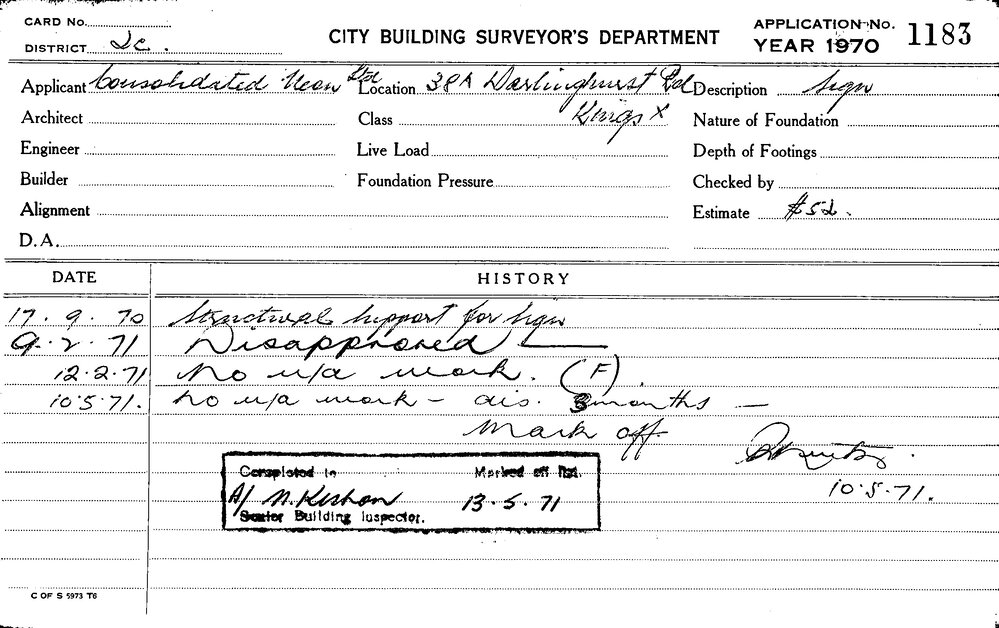 CARD No.
DISTRICT Ic.
CITY BUILDING SURVEYOR'S DEPARTMENT
APPLICATION No. 1183
YEAR 1970
Applicant Consolidated Neon Ltd Location 38A Darlinghurst Rd Description Sign
Kings X
Architect Class Nature of Foundation
Engineer Live Load Depth of Footings
Builder Foundation Pressure Checked by
Alignment Estimate $52.
D.A.
DATE HISTORY
17. 9. 70 Structural Support for Sign
9. 2. 71 Disapproved
12.2.71 No u/a work. (F)
10.5.71. No u/a work - dis. 3 months -
Mark off.
10.5.71.
Completed in Marked off list.
A/ N. 13.5.71
Senior Building Inspector.
C OF S 5973 T6